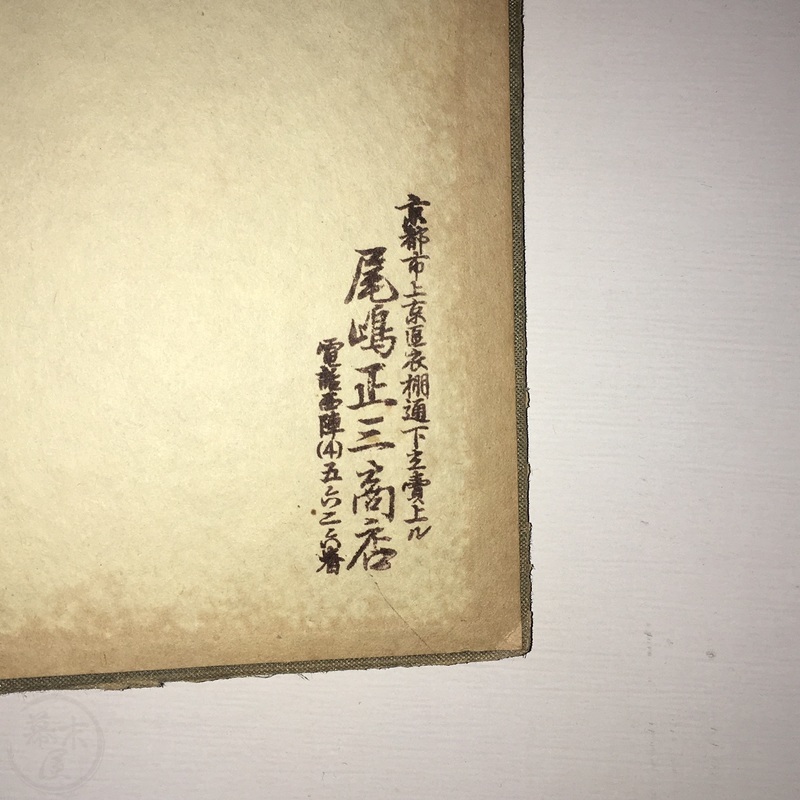 京都市上京區衣棚通下立賣上ル
尾嶋正三商店
電話西陣(4)五六二六番
幕末屋